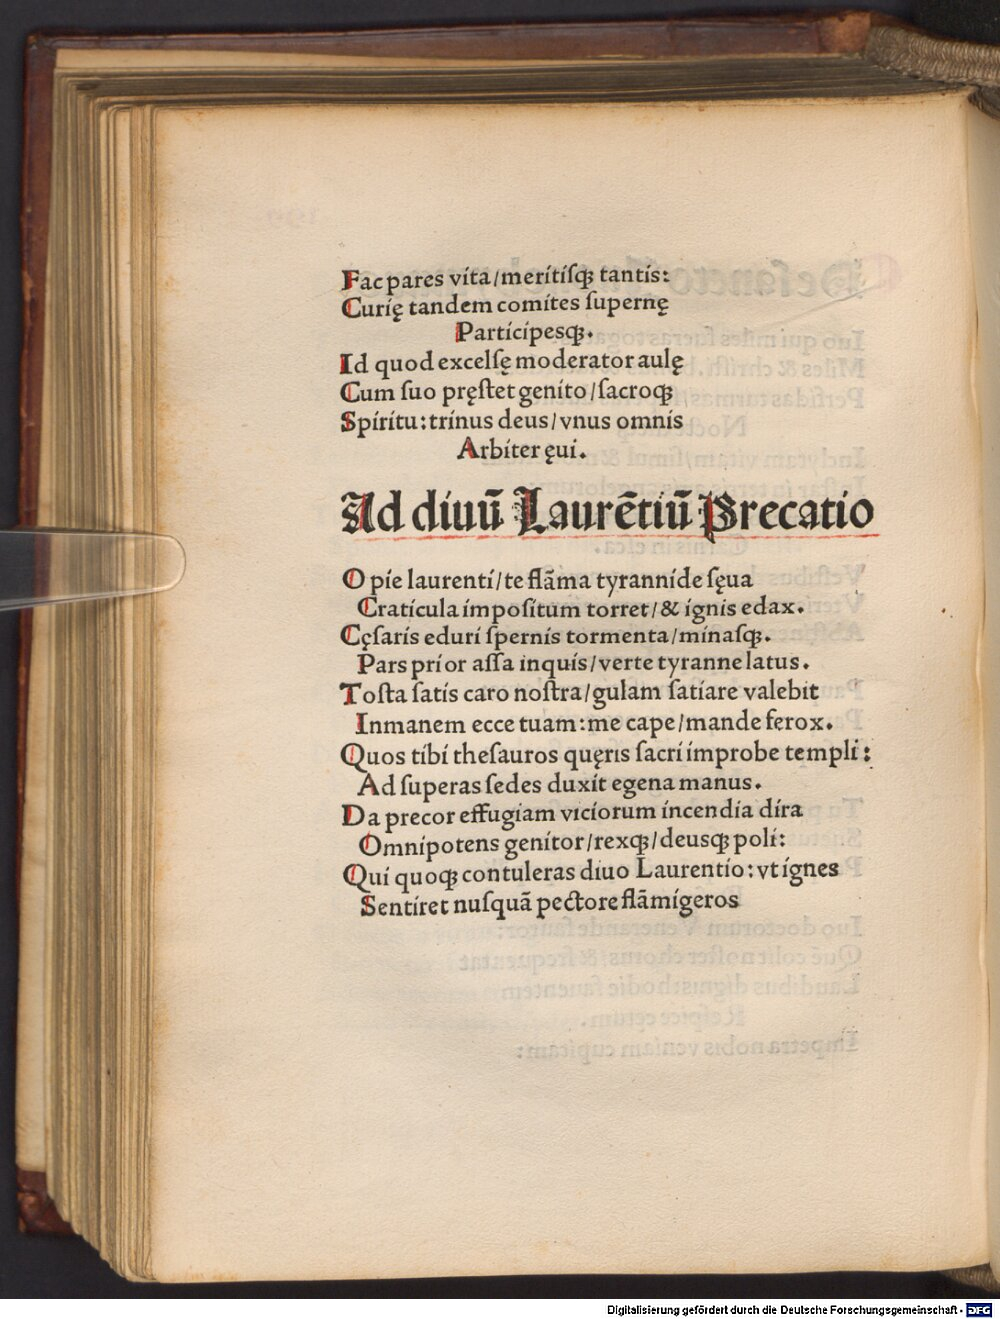 Fac pares vita/meritiſqꝫ tantis:
Curię tandem comites ſupernę
Participesqꝫ.
Id quod excelſę moderator aulę
Cum ſuo pręſtet genito/ſacroqꝫ
Spiritu:trinus deus/vnus omnis
Arbiter ęui.
Ad diuū Laurētiū Precatio
O pie laurenti/te flāma tyrannide ſęua
Craticula impoſitum torret/& ignis edax.
Cęſaris eduri ſpernis tormenta/minaſqꝫ.
Pars prior aſſa inquis/verte tyranne latus.
Toſta ſatis caro noſtra/gulam ſatiare valebit
Inmanem ecce tuam:me cape/mande ferox.
Quos tibi theſauros quęris ſacri improbe templi:
Ad ſuperas ſedes duxit egena manus.
Da precor effugiam viciorum incendia dira
Omnipotens genitor/rexqꝫ/deusqꝫ poli:
Qui quoqꝫ contuleras diuo Laurentio:vt ignes
Sentiret nuſquā pectore flāmigeros
Digitalisierung gefördert durch die Deutsche Forschungsgemeinschaft - DFG